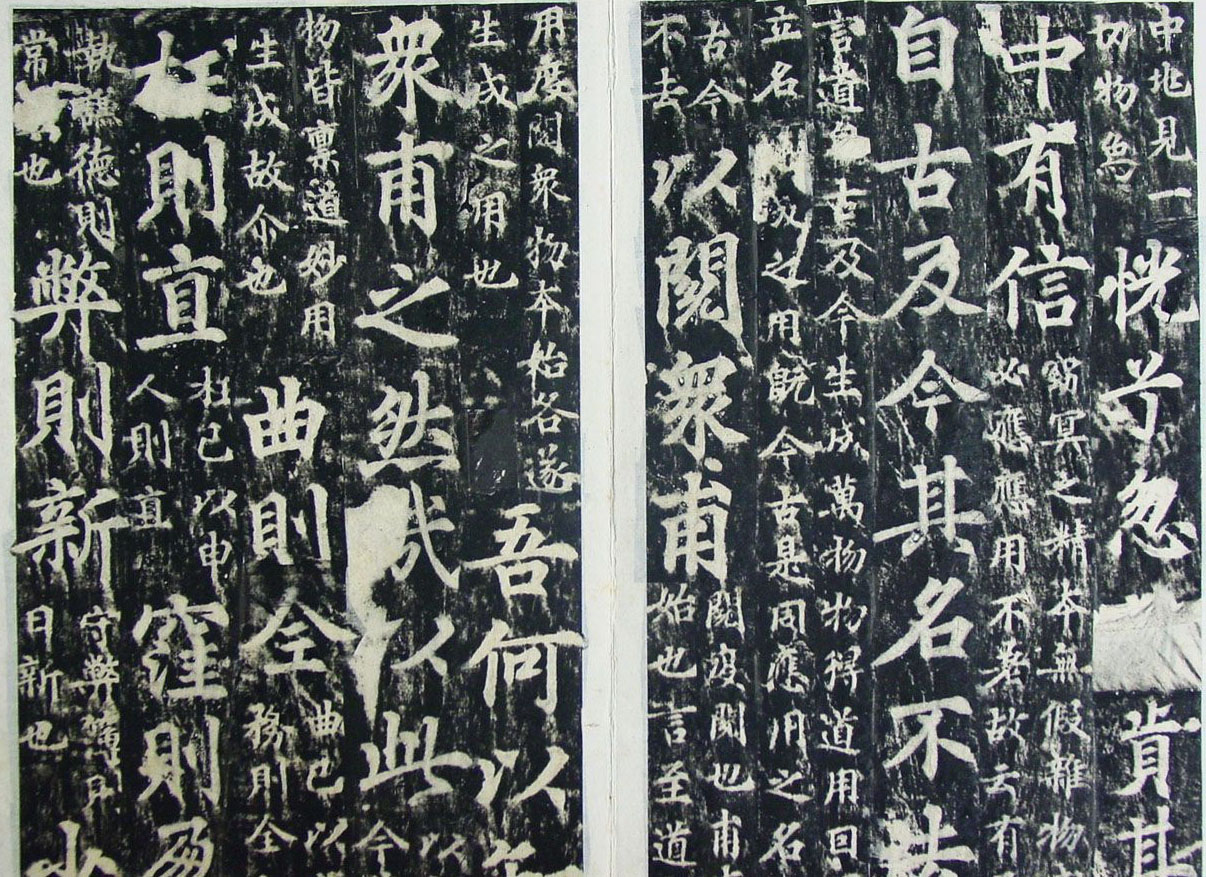 中兆見一
切物焉
恍兮忽
其
中有信
窈冥之精本無假雜物
必應應用不差故云有
自古及今其名不去
言道自古及今生成萬物物得道用因
立名生成之用既今古是同應用之名
古今
不去
以閱衆甫
閱度閱也甫
始也言至道
用度閱衆物本始各遂
生成之用也
吾何以
衆甫之然哉以此
以
今
物皆禀道妙用
生成故尒也
曲則全
曲己以
務則全
枉則直
枉己以申
人則直
窪則盈
執謙德則
常也
弊則新
守弊薄身
日新也
少